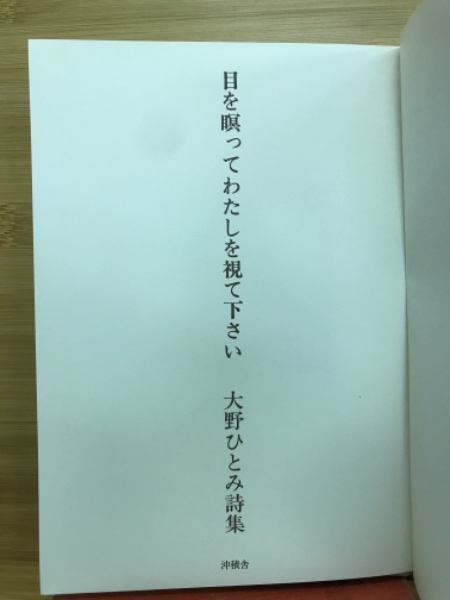 目を瞑ってわたしを視て下さい　大野ひとみ詩集
沖積舎